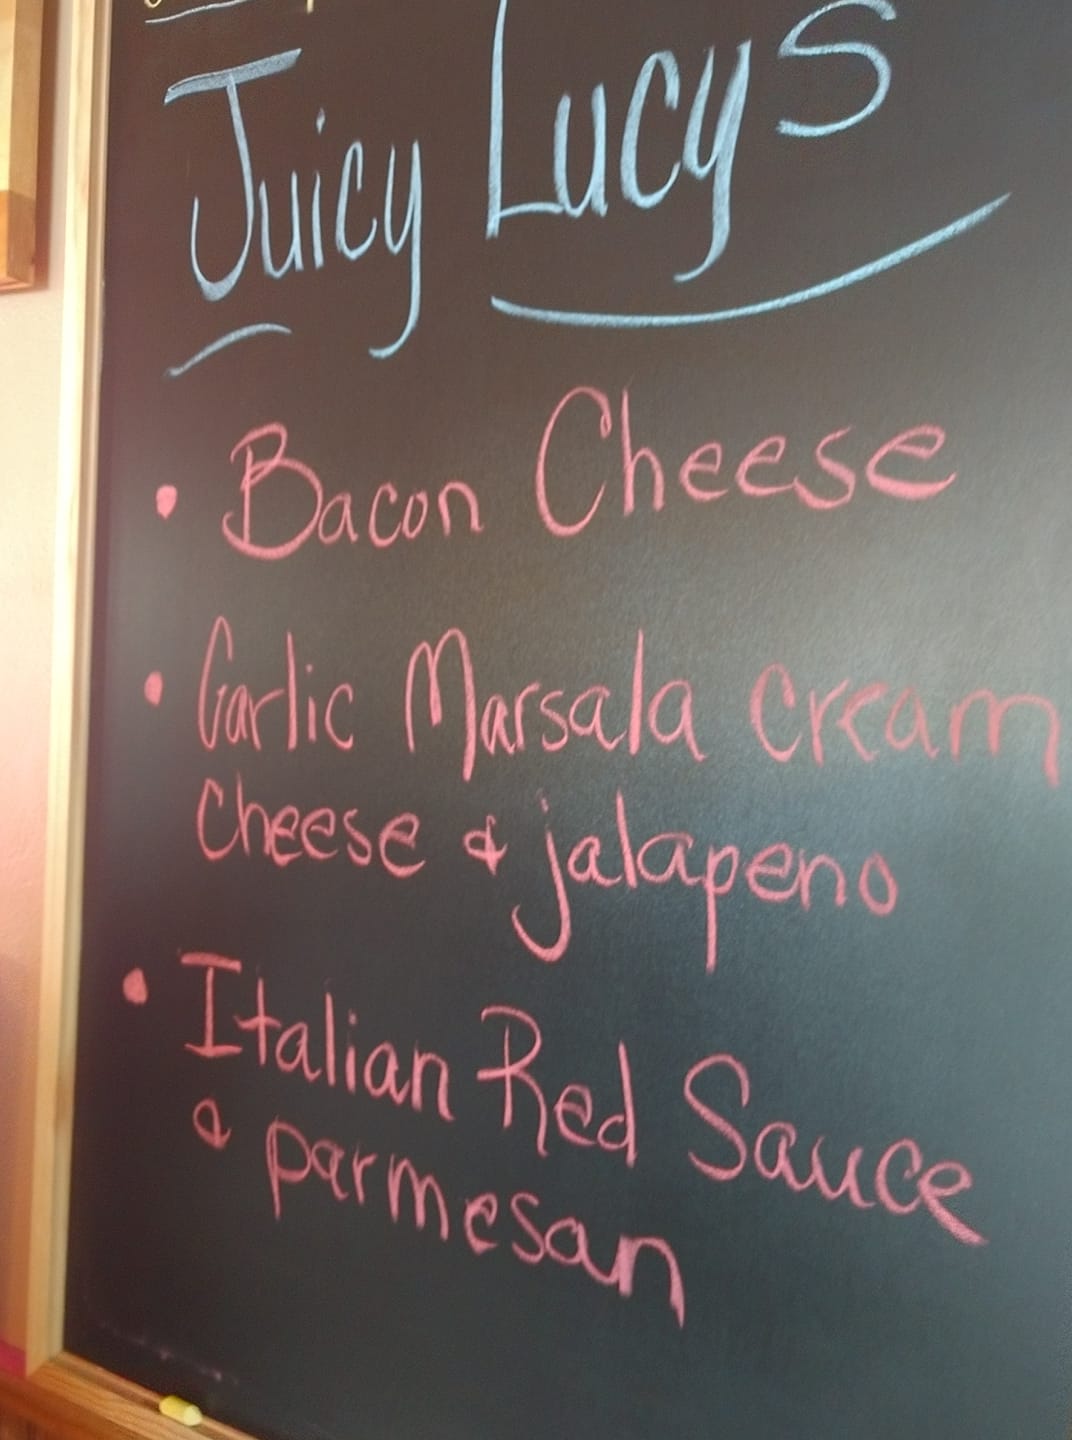 Juicy Lucys
• Bacon Cheese
• Garlic Marsala cream
cheese & jalapeno
• Italian Red Sauce
& parmesan